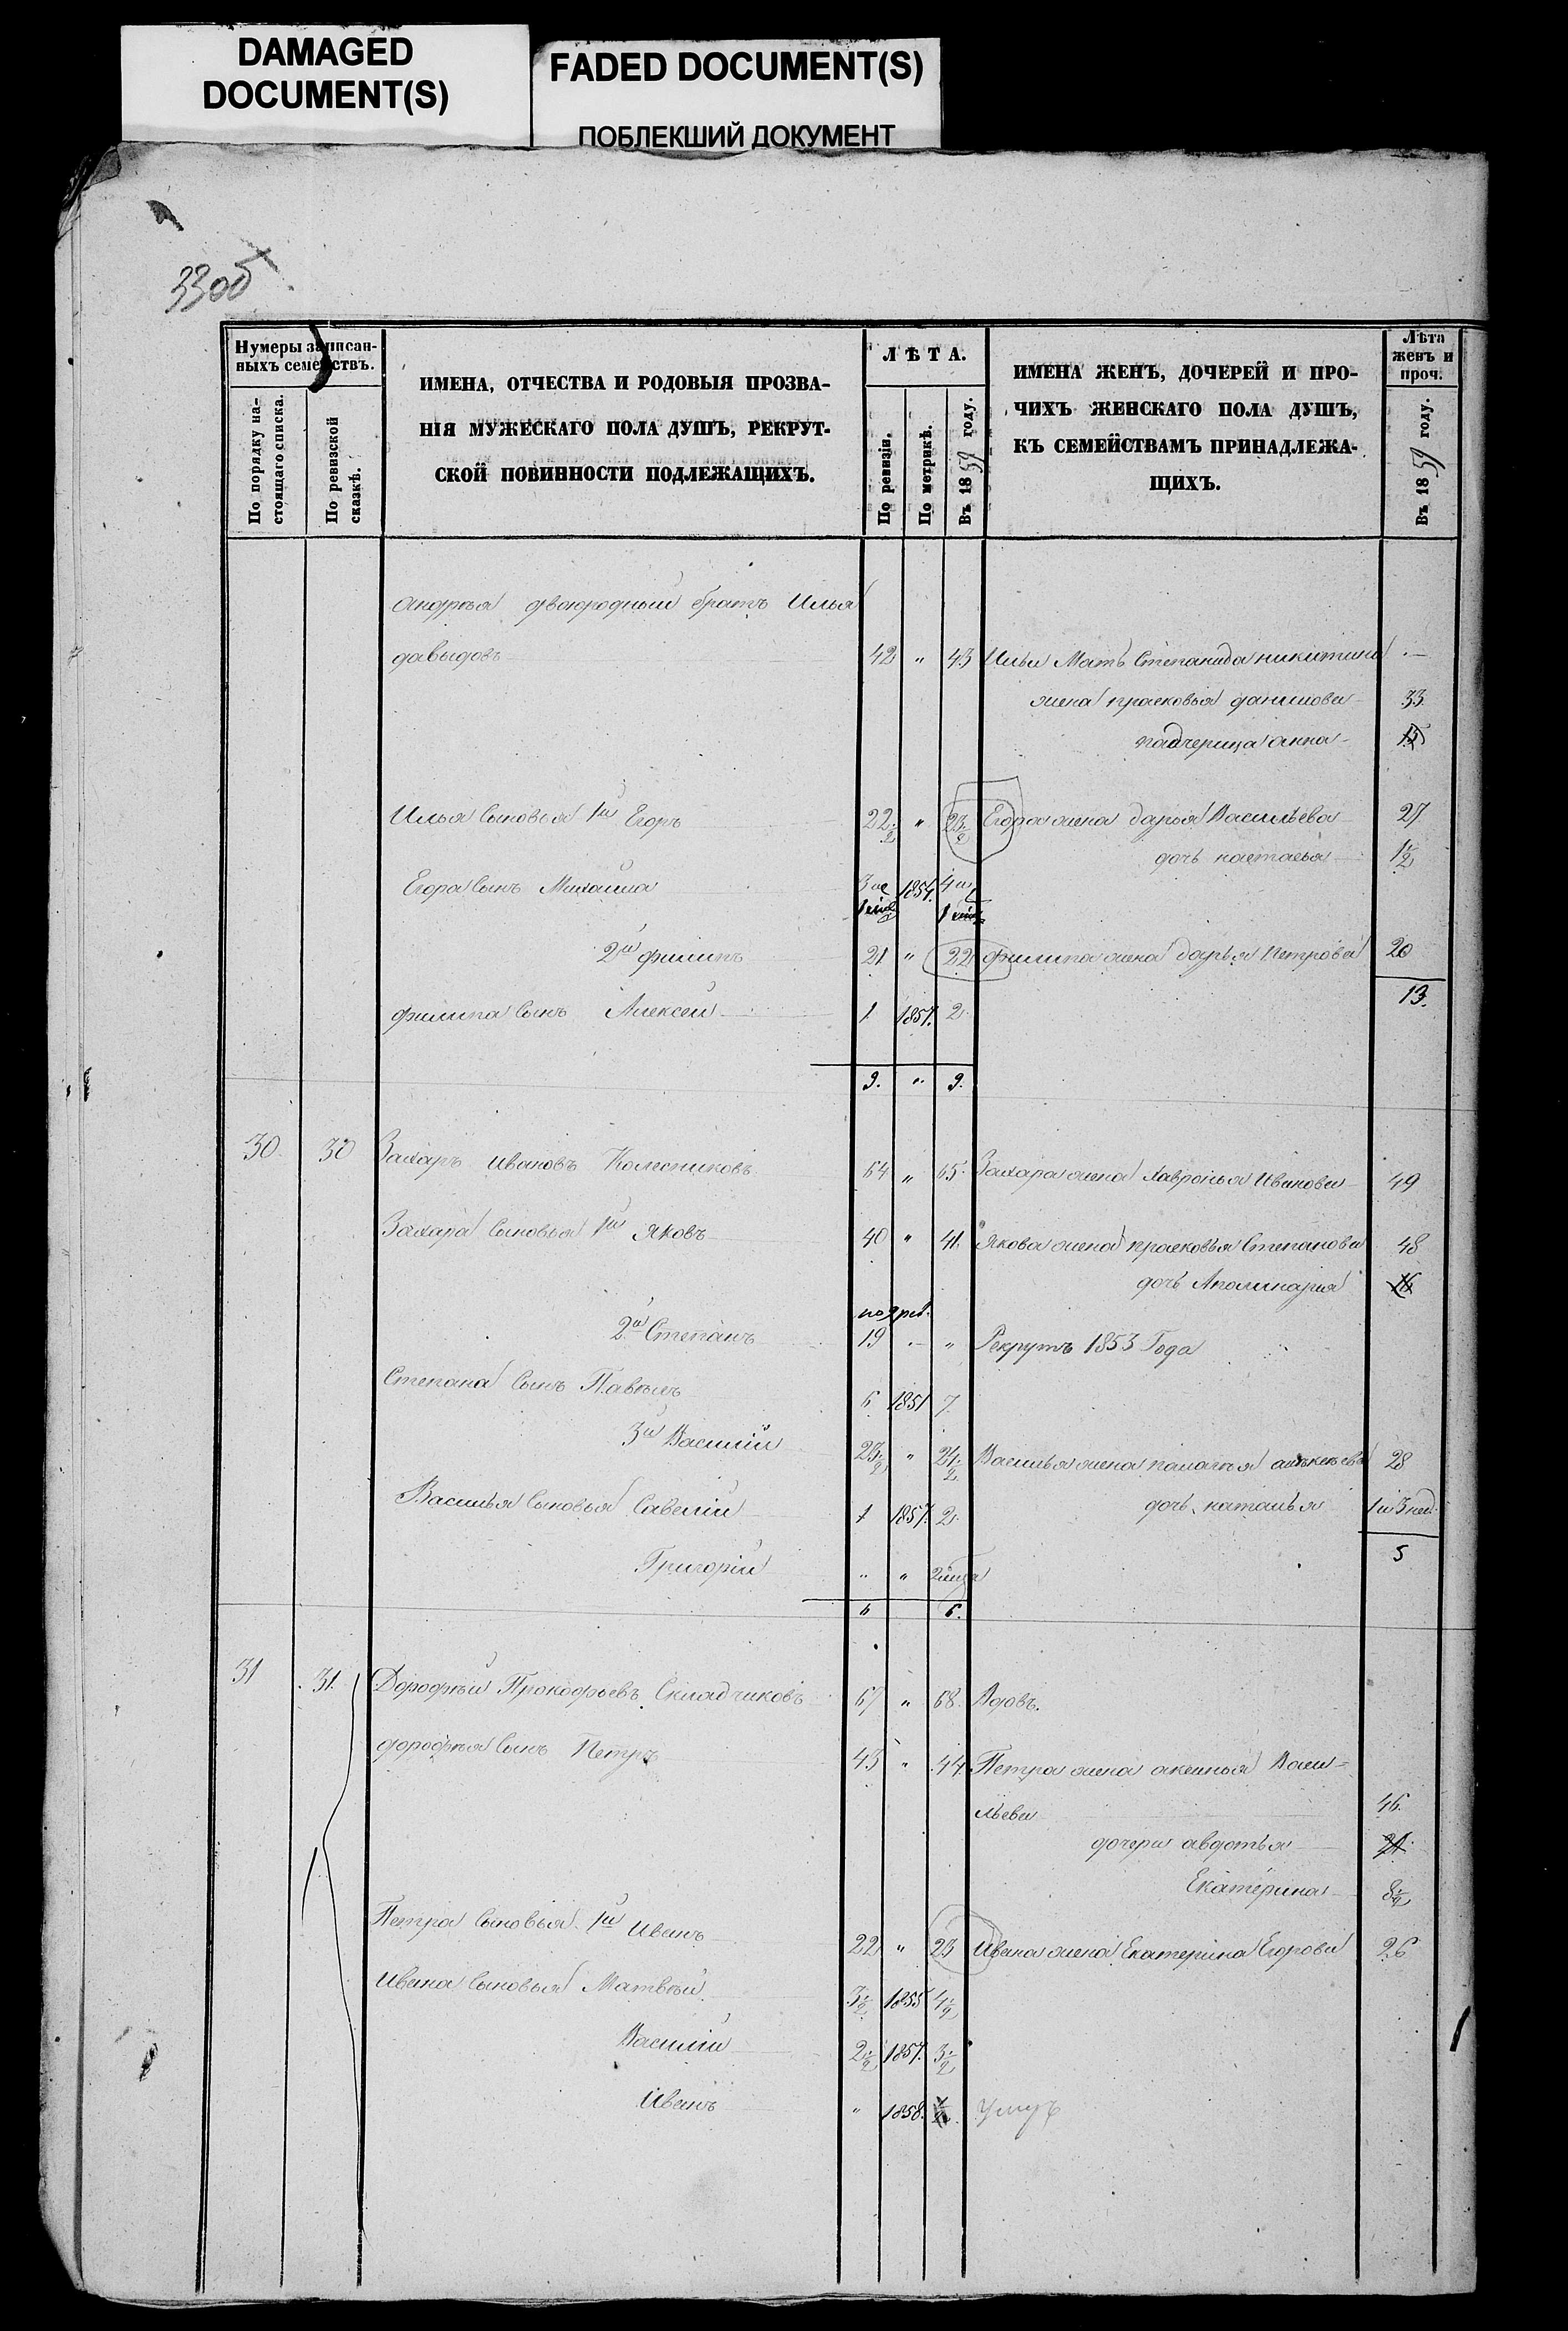 DAMAGED
DOCUMENT(S)
FADED DOCUMENT(S)
ПОБЛЕКШИЙ ДОКУМЕНТ
33об
Нумеры записан-
ныхъ семействъ.
По порядку на-
стоящаго списка.
По ревизской
сказкѣ.
ИМЕНА, ОТЧЕСТВА И РОДОВЫЯ ПРОЗВА-
НІЯ МУЖЕСКАГО ПОЛА ДУШЪ, РЕКРУТ-
СКОЙ ПОВИННОСТИ ПОДЛЕЖАЩИХЪ.
ЛѢТА.
По ревизіи.
По метрикѣ.
Въ 1859 году.
ИМЕНА ЖЕНЪ, ДОЧЕРЕЙ И ПРО-
ЧИХЪ ЖЕНСКАГО ПОЛА ДУШЪ,
КЪ СЕМЕЙСТВАМЪ ПРИНАДЛЕЖА-
ЩИХЪ.
Лѣта
женъ и
проч.
Въ 1859 году.
андрея двоюродный братъ Илья
давыдовъ 42 " 43 Ильи Мать Степанида никитина —
жена прасковья данилова 33
падчерица анна 15
Илья Сыновья 1й Егоръ 22½ " 23½ Егора жена дарья Васильева 27
дочь настасья 1½
Егора Сынъ Михаила 1854
2й филипъ 21 " 22 филипа жена дарья Петрова 20
13.
филипа Сынъ Алексей 1 1857. 2
9. " 9.
30 30 Захаръ ивановъ Колесниковъ 64 " 65 Захара жена хавронья Иванова 49
Захара Сыновья 1й яковъ 40 " 41 Якова жена прасковья Степанова 48
дочь Аполинария 16
2й Степанъ 19 " " Рекрутъ 1853 Года
Степана Сынъ Павелъ 6 1851 7
3й Василий 23½ " 24½ Василья жена палагья 28
Василья Сыновья Савелий 1 1857. 2 дочь наталья 1 и 3 нед.
5
Григорий " " 2 мѣсца
6 6.
31 31. Дорофѣй Прокофьевъ Складчиковъ 67 " 68. Вдовъ.
дорофѣя Сынъ Петръ 43 " 44 Петра жена аксинья Васи-
льева 46.
дочери авдотья 21
Екатерина 8½
Петра Сыновья 1й иванъ 22 " 23 ивана жена Екатерина Егорова 26
ивана Сыновья Матвѣй 3½ 1855 4½
Василий 2½ 1857. 3½
Иванъ " 1858. ½ Умеръ